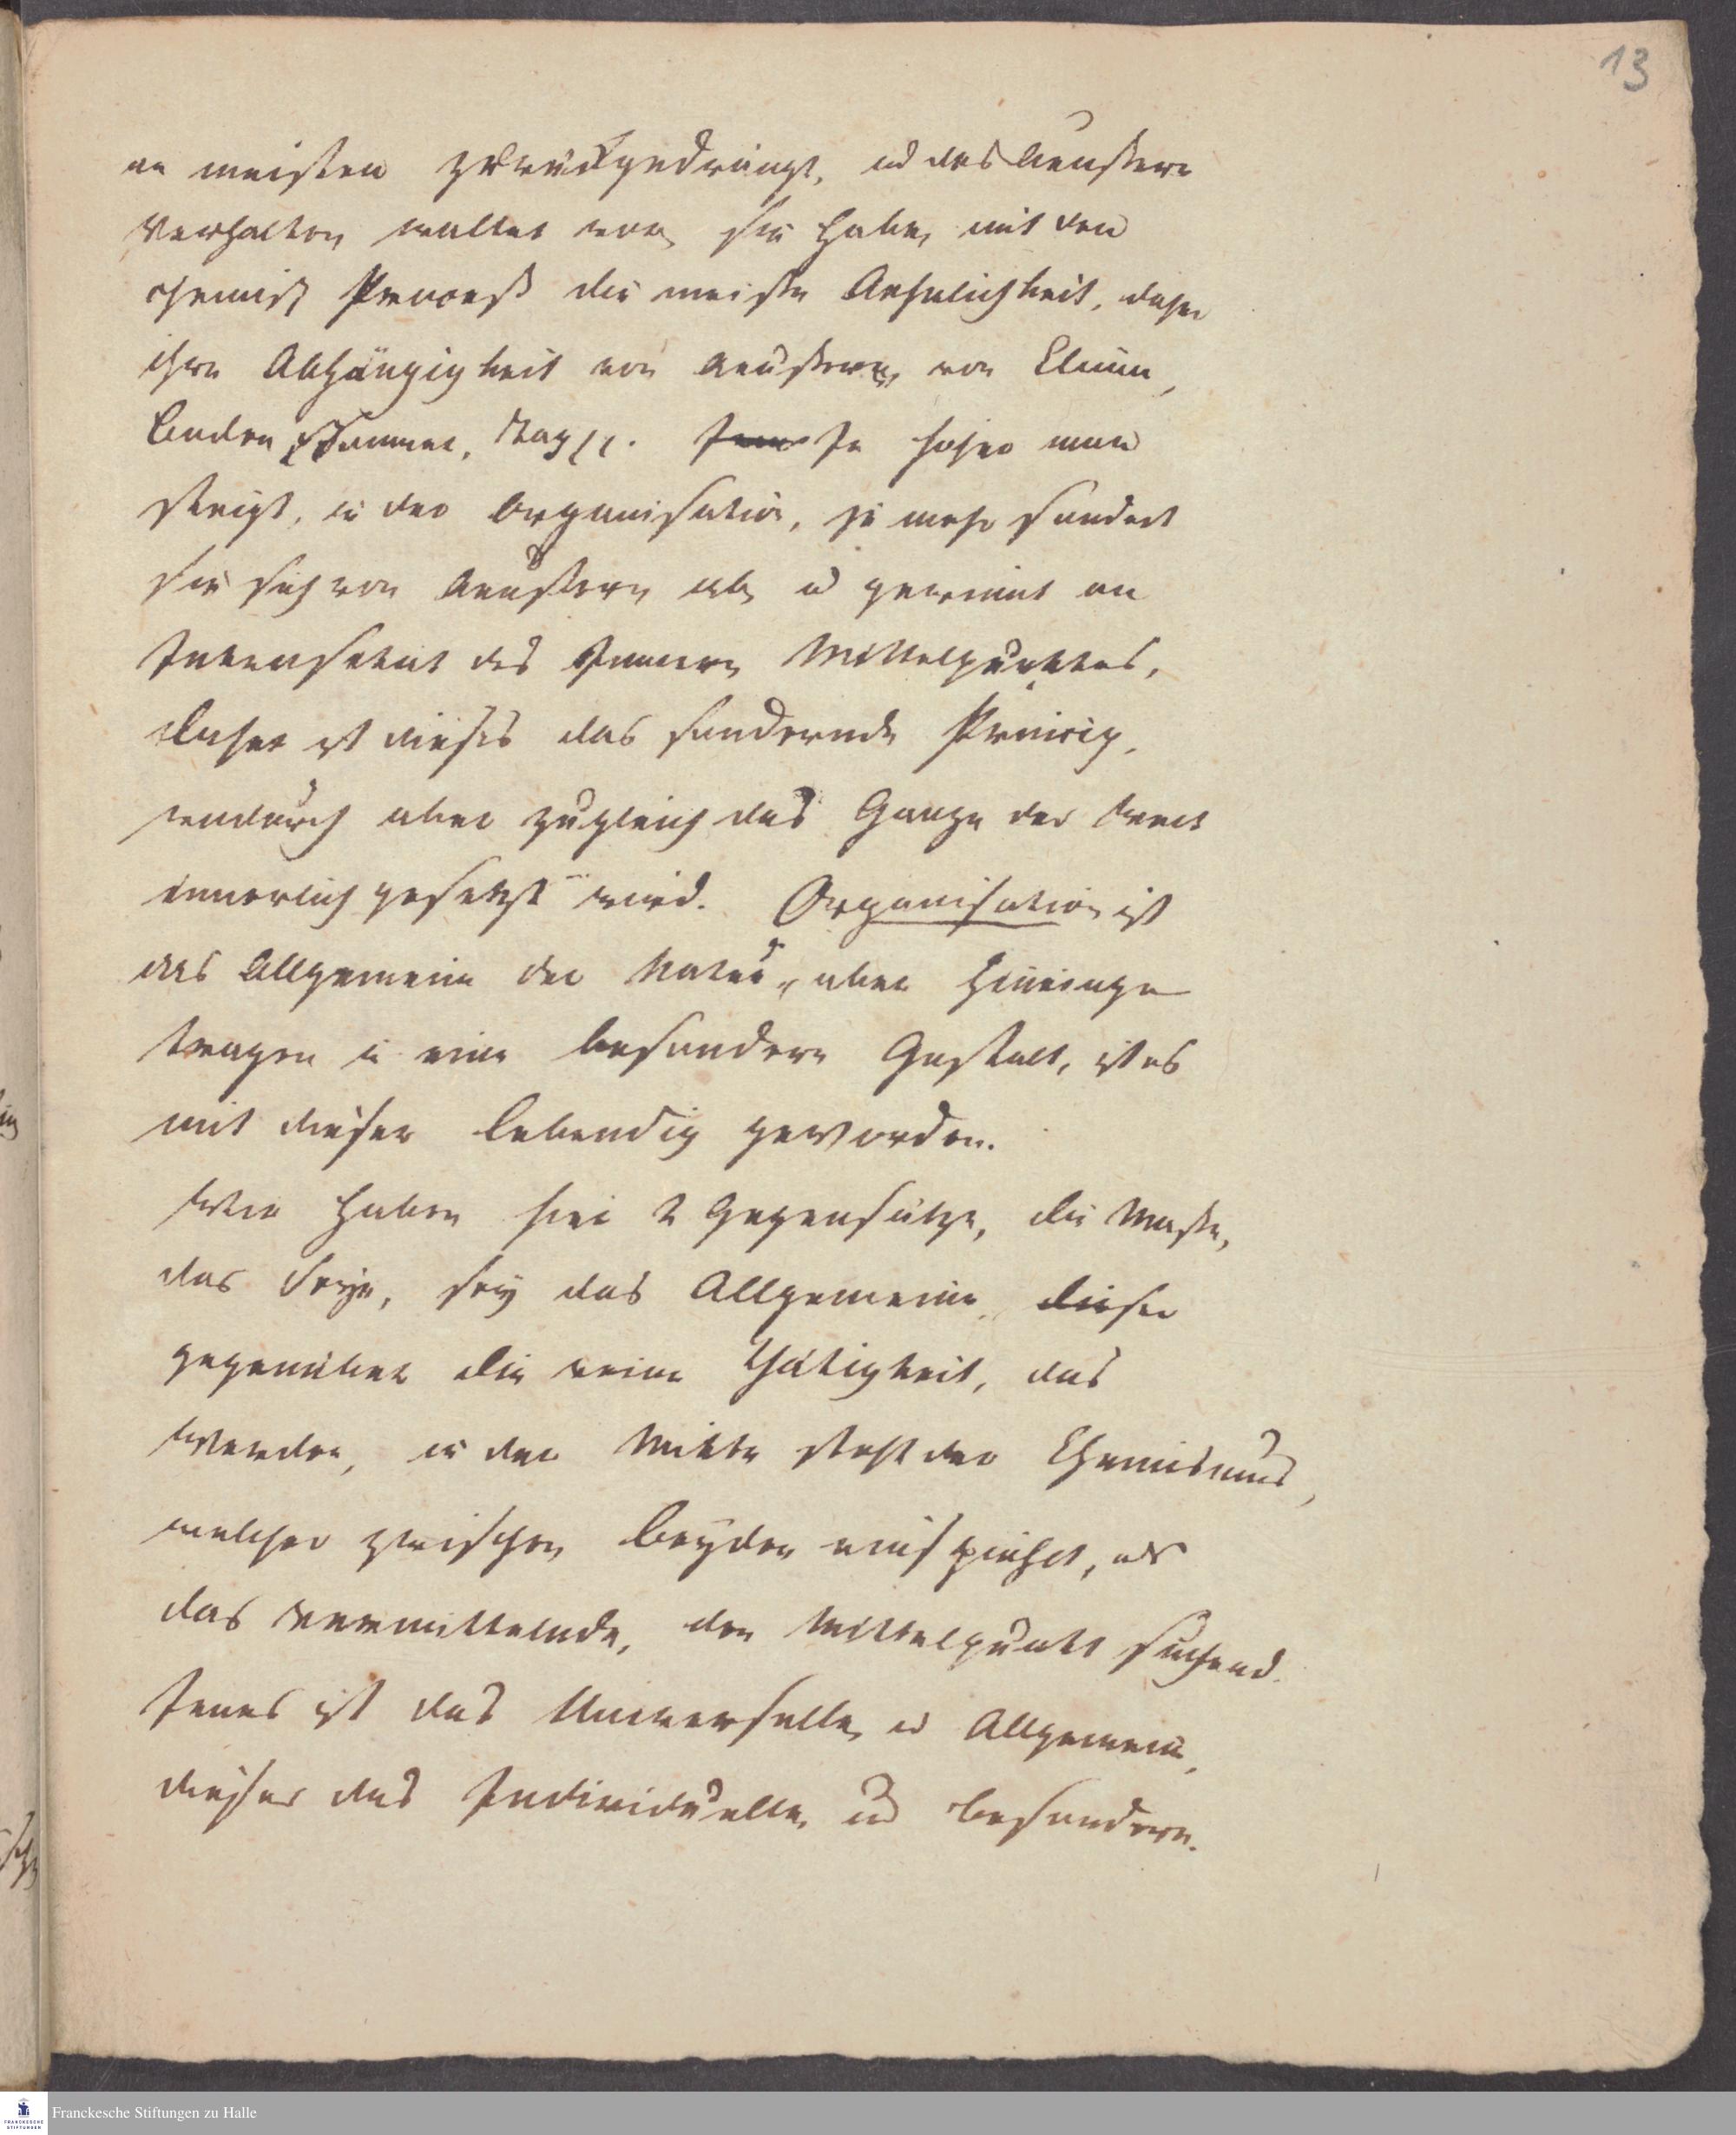 13
am meisten zurückgedrängt, und das äußere
Verhalten waltet vor, sie haben mit dem
chemisch Proceß die meiste Aehnlichkeit, daher
ihre Abhängigkeit von äußeren, von Clima,
Boden, Sommer, Tag pp. Je höher man
steigt, in der Organisation, je mehr sondert
sie sich vom äußern ab, u gewinnt an
Intensetaet des Innern Mittelpunktes,
daher ist dieses das sondernde Princip,
wodurch aber zugleich das Ganze der Welt
innerlich gesetzt wird. Organisation ist
das Allgemeine der Natur, aber hineinge
tragen in eine besondere Gestalt, ist es
mit dieser lebendig geworden.
Wir haben hier 2 Gegensätze, die Masse,
das Seyn, sey das Allgemeine, dieser
gegenüber die reine Thätigkeit, das
Werden, in der Mitte steht der Chemismus,
welcher zwischen beyden als
das vermittelnde, den Mittelpunkt suchend.
Jenes ist das Universelle, u Allgemeine,
dieses das Individuelle, und besondere.
Franckesche Stiftungen zu Halle
FRANCKESCHE
STIFTUNGEN